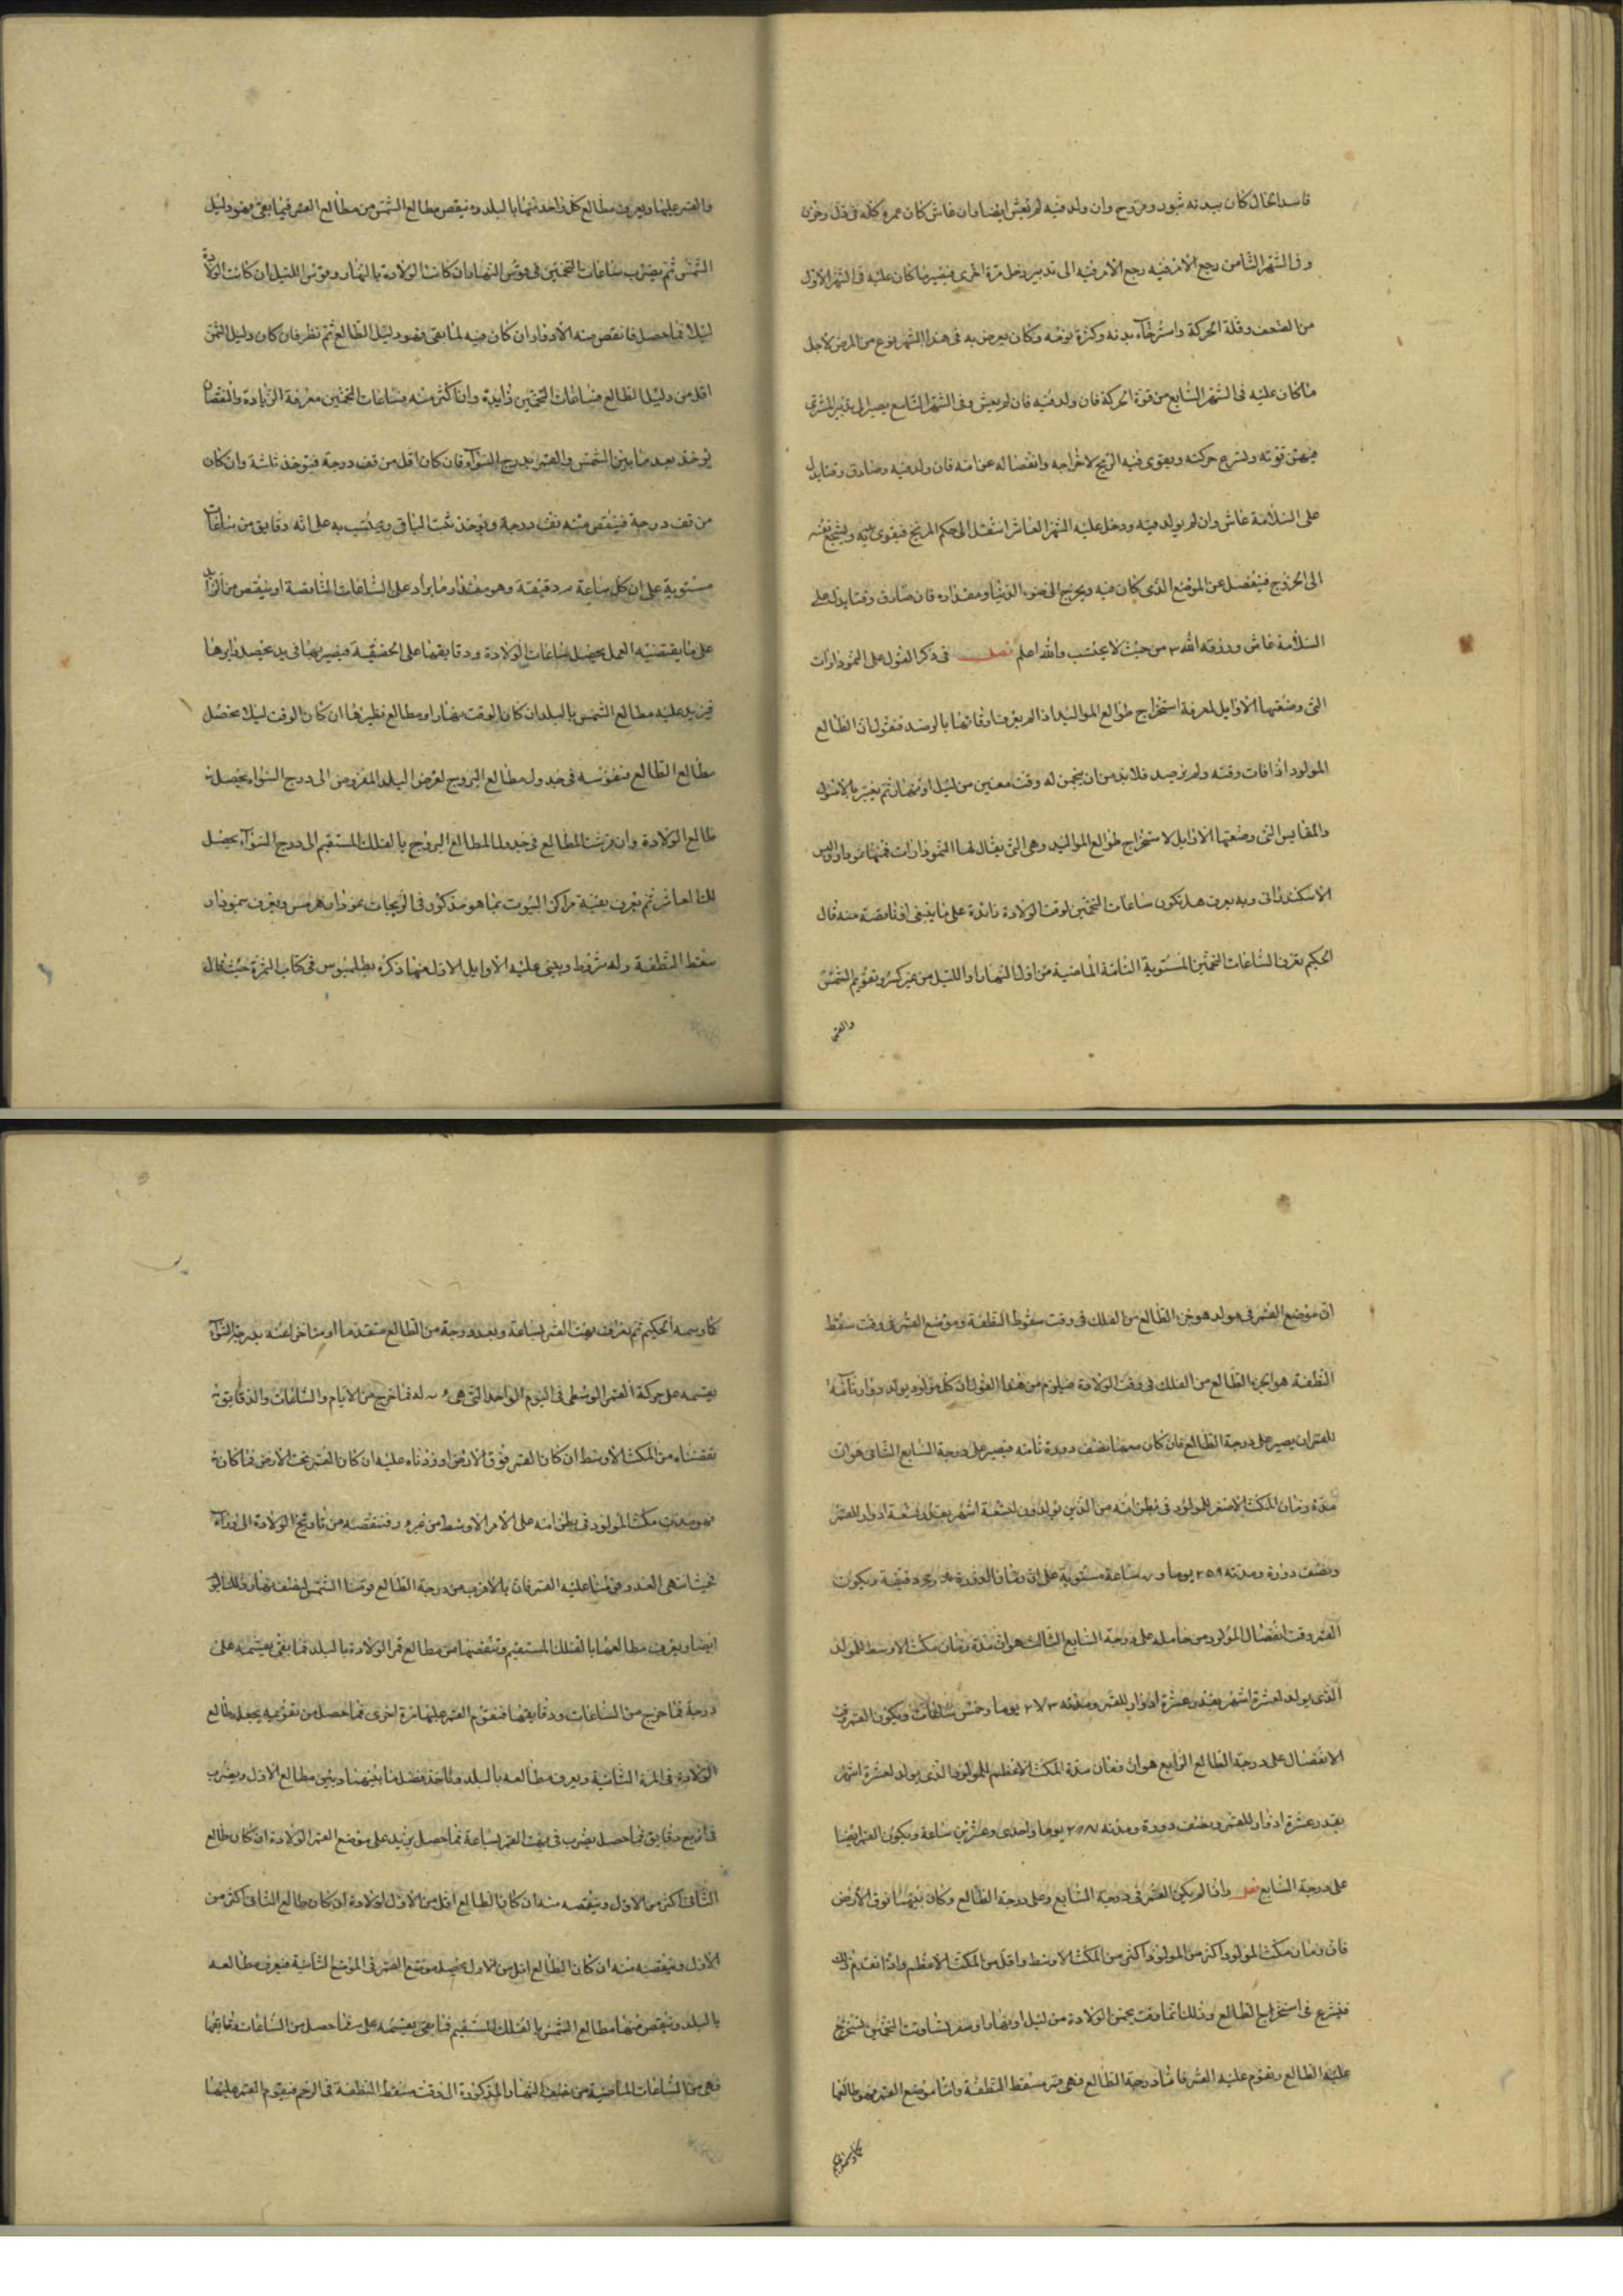 فاسد الحال كان ببدنه بثور وقروح وان ولد فيه لم يعش ايضا وان عاش كان عمره كله في ذل وحزن
وفي الشهر الثامن رجع الامر فيه رجع الامر فيه الى تدبير زحل مرة اخرى فيصير ما كان عليه في الشهر الاول
من الضعف وقلة الحركة واسترخاء بدنه وكثرة نومه وكان يعرض به في هذا الشهر نوع من المرض لاجل
ما كان عليه في الشهر السابع من قوة الحركة فان ولد فيه فان لم يعش وفي الشهر التاسع يصير الى تدبير المشترى
قوته ويسرع حركته ويقوى فيه الريح لاخراجه وانفصاله عن امه فان ولد فيه وصادف وقتا يدل
على السلامة عاش وان لم يولد فيه ودخل عليه الشهر العاشر انتقل الى حكم المريخ فيقوى ويشجع نفسه
الى الخروج فينفصل عن الموضع الذى كان فيه ويخرج الى ضوء الدنيا ومقداره فان صادف وقتا يدل على
السلامة عاش ورزقه الله من حيث لا يحتسب والله اعلم فصل في ذكر القول على النموذارات
التى وضعتها الاوايل لمعرفة استخراج طوالع المواليد اذا لم يعرف اوقاتها بالرصد فنقول ان الطالع
المولود اذا فات وقته ولم يرصد فلا بد من ان يخمن له وقت معين من ليل او نهار ثم يعتبر بالاصول
والمقايس التى وضعتها الاوايل لاستخراج طوالع المواليد وهى التى يقال لها النموذارات فمنها نموذار واليس
الاسكندرانى وبه يعرف هل تكون ساعات التخمين لوقت الولادة زائدة على ما ينبغى او ناقصة منه قال
الحكيم تعرف الساعات التخمين المستوية التامة الماضية من اول النهار او الليل من غير كسر وتقويم الشمس
والقمر
والقمر عليها ويعرف مطالع كل واحد منهما بالبلد وينقص مطالع الشمس من مطالع القمر فما بقى فهو دليل
الشمس ثم يضرب ساعات التخمين في قوس النهار ان كانت الولادة بالنهار وقوس الليل ان كانت الولادة
ليلا فما حصل فانقص منه الادوار ان كان فيه لما بقى فهو دليل الطالع ثم نظر فان كان دليل الشمس
اقل من دليل الطالع فساعات التخمين زايدة وان اكثر منه فساعات التخمين معرفة الزيادة والنقصان
يؤخذ بعد ما بين الشمس والقمر بدرج السواء فان كان اقل من قف درجة فيوخذ ثلثه وان كان
من قف درجة فينقص منه قف درجة ويوخذ ثلث الباقى ويحتسب به على انه دقايق من ساعات
مستوية على ان كل ساعة س دقيقة وهو مقدار ما يزاد على الساعات الناقصة او ينقص من الزايد
على ما يقتضيه العمل يحصل ساعات الولادة ودقايقها على الحقيقة فيصير بها في يد يحصل دايرها
فيزيد عليه مطالع الشمس بالبلد ان كان الوقت نهارا ومطالع نظيرها ان كان الوقت ليلا يحصل
مطالع الطالع فنقوسه في جدول مطالع البروج لعرض البلد المفروض الى درج السواء يحصل
طالع الولادة وان قوست المطالع في جدول المطالع البروج بالفلك المستقيم الى درج السواء يحصل
لك العاشر ثم تعرف بقية مراكز البيوت بما هو مذكور في الزيجات نموذار هرمس ويعرف بنموذار
سقط النطفة وله شروط ويبنى عليه الاوايل الاول منها ذكره بطلميوس في كتاب الثمرة حيث قال
ان موضع القمر في مولد هو جزء الطالع من الفلك في وقت سقوط النطفة وموضع القمر في وقت سقط
النطفة هو الجزء الطالع من الفلك في وقت الولادة فيلزم من هذا القول ان كل مولود يولد دوار تامة
للقمر ان يصير على درجة الطالع فان كان معها نصف دورة تامه فيصير على درجة السابع الثانى هو ان
مدة زمان المكث الاصغر للمولود في بطن امه من الذين يولدون لتسعة اشهر بقدر تسعة ادوار للقمر
ونصف دورة ومدته ٢٥٩ يوما و ساعة مستوية على ان زمان الدورة دقيقة ويكون
القمر وقت انفصال المولود من حامله على درجة السابع الثالث هو ان مدة زمان مكث الاوسط للمولد
الذى يولد لعشرة اشهر بقدر عشرة ادوار للقمر ومدته ٢٧٣ يوما وخمس ساعات ويكون القمر وقت
الانفصال على درجة الطالع الرابع هو ان زمان مدة المكث الاعظم للمولود الذى يولد لعشرة اشهر
بقدر عشرة ادوار للقمر ونصف دورة ومدته ٢٨٧ يوما واحدى وعشرين ساعة ويكون القمر ايضا
على درجة السابع فصل واذا لم يكن القمر في درجة السابع وعلى درجة الطالع وكان بينهما فوق الارض
فان زمان مكث المولود اكثر من المولود اكثر من المكث الاوسط واقل من المكث الاعظم واذا تقدم ذلك
فنشرع في استخراج الطالع وذلك انما وقت يخمن الولادة من ليل او نهار التخمين يستخرج
عليه الطالع ونقوم عليه القمر فاما درجة الطالع فهى قمر مسقط النطفة واما موضع القمر فهو طالعها
كما رسمه الحكيم
كما رسمه الحكيم ثم يعرف بهت القمر لساعة وبعده درجة من الطالع متقدما او متاخرا عنه بدرج السواء
يقسمه على حركة القمر الوسطى في اليوم الواحد التى هى فما خرج من الايام والساعات والدقايق
نقصناه من المكث الاوسط ان كان القمر فوق الارض او زدناه عليه ان كان القمر تحت الارض فما كان
فهو مدة مكث المولود في بطن امه على الامر الاوسط من غيره فننقصه من تاريخ الولادة الى وراء
فحيث انتهى العدد قومنا عليه القمر فان بالاقرب من درجة الطالع قومنا الشمس لنصف نهار ذلك اليوم
ايضا ويعرف مطالعها بالفلك المستقيم وتنقصها من مطالع قمر الولادة بالبلد فما بقى يقسمه على
درجة فما خرج من الساعات ودقايقها فنقوم القمر عليها مرة اخرى فما حصل من تقويمه يجعل طالع
الولادة في المرة الثانية ويعرف مطالعه بالبلد فتاخذ فضل ما بينهما وبين مطالع الاول ويضرب
في اربع دقايق فما حصل يضرب في بهت القمر لساعة فما حصل يزيد على موضع القمر الولادة ان كان طالع
الثانى اكثر من الاول وينقصه منه ان كان الطالع اقل من الاول الولادة ان كان طالع الثانى اكثر من
الاول وينقصه منه ان كان الطالع اقل من الاول يحصل موضع القمر في الموضع الثانية فيعرف مطالعه
بالبلد وينقص منها مطالع الشمس بالفلك المستقيم فما بقى يقسمه على فما حصل من الساعات ودقايقها
فهى من الساعات الماضية من نصف النهار المذكورة الى وقت مسقط النطفة في الرحم فيقوم القمر عليها